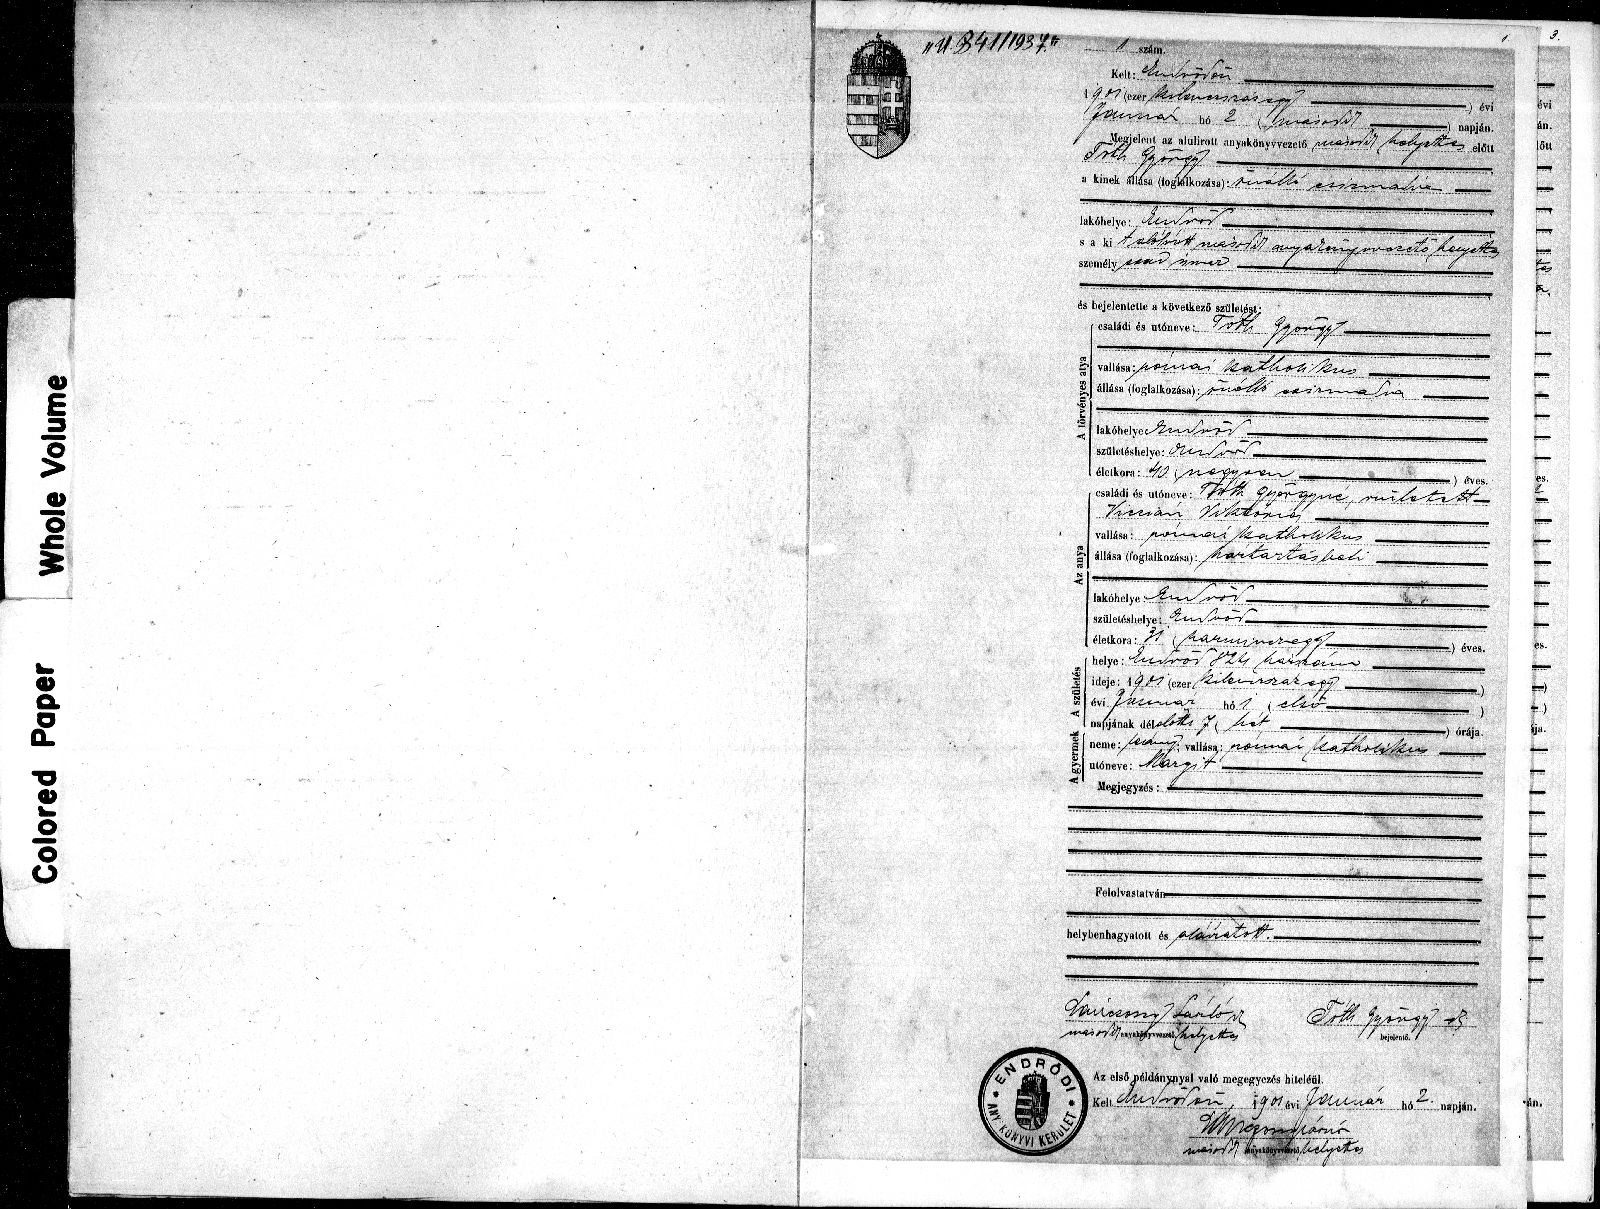 Whole Volume
Colored Paper
"U. 841/1937."
1
3.
1 szám.
Kelt: Endrődön
1901 (ezer kilencszázegy) évi
Január hó 2 (második) napján.
Megjelent az alulirott anyakönyvvezető második helyettes előtt
Tóth György
a kinek állása (foglalkozása): önálló csizmadia
lakóhelye: Endrőd
s a ki t alólirott második anyakönyvvezető helyettes
személyesen ismer
és bejelentette a következő születést:
A törvényes atya
családi és utóneve: Tóth György
vallása: római katholikus
állása (foglalkozása): önálló csizmadia
lakóhelye: Endrőd
születéshelye: Endrőd
életkora: 40 (negyven) éves.
Az anya
családi és utóneve: Tóth Györgyné, született
Viktória
vallása: római katholikus
állása (foglalkozása): háztartásbeli
lakóhelye: Endrőd
születéshelye: Endrőd
életkora: 31 (harminczegy) éves.
A születés
helye: Endrőd 824 házszám
ideje: 1901 (ezer kilenczszázegy)
évi Január hó 1 (első)
napjának délelőtti 7 (hét) órája.
A gyermek
neme: leány; vallása: római katholikus
utóneve: Margit
Megjegyzés:
Felolvastatván
helybenhagyatott és aláiratott.
László
második anyakönyvvezető helyettes
Tóth György
bejelentő.
Az első példánynyal való megegyezés hiteléül.
Kelt Endrődön, 1901 évi Január hó 2. napján.
második anyakönyvvezető helyettes
ENDRŐDI
ANYAKÖNYVI KERÜLET